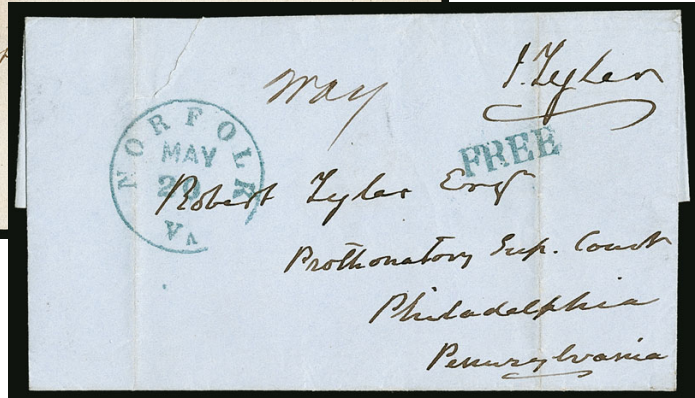 Way
J. Tyler
FREE
NORFOLK
MAY
29
VA
Robert Tyler Esqr
Prothonatory Sup. Court
Philadelphia
Pennsylvania